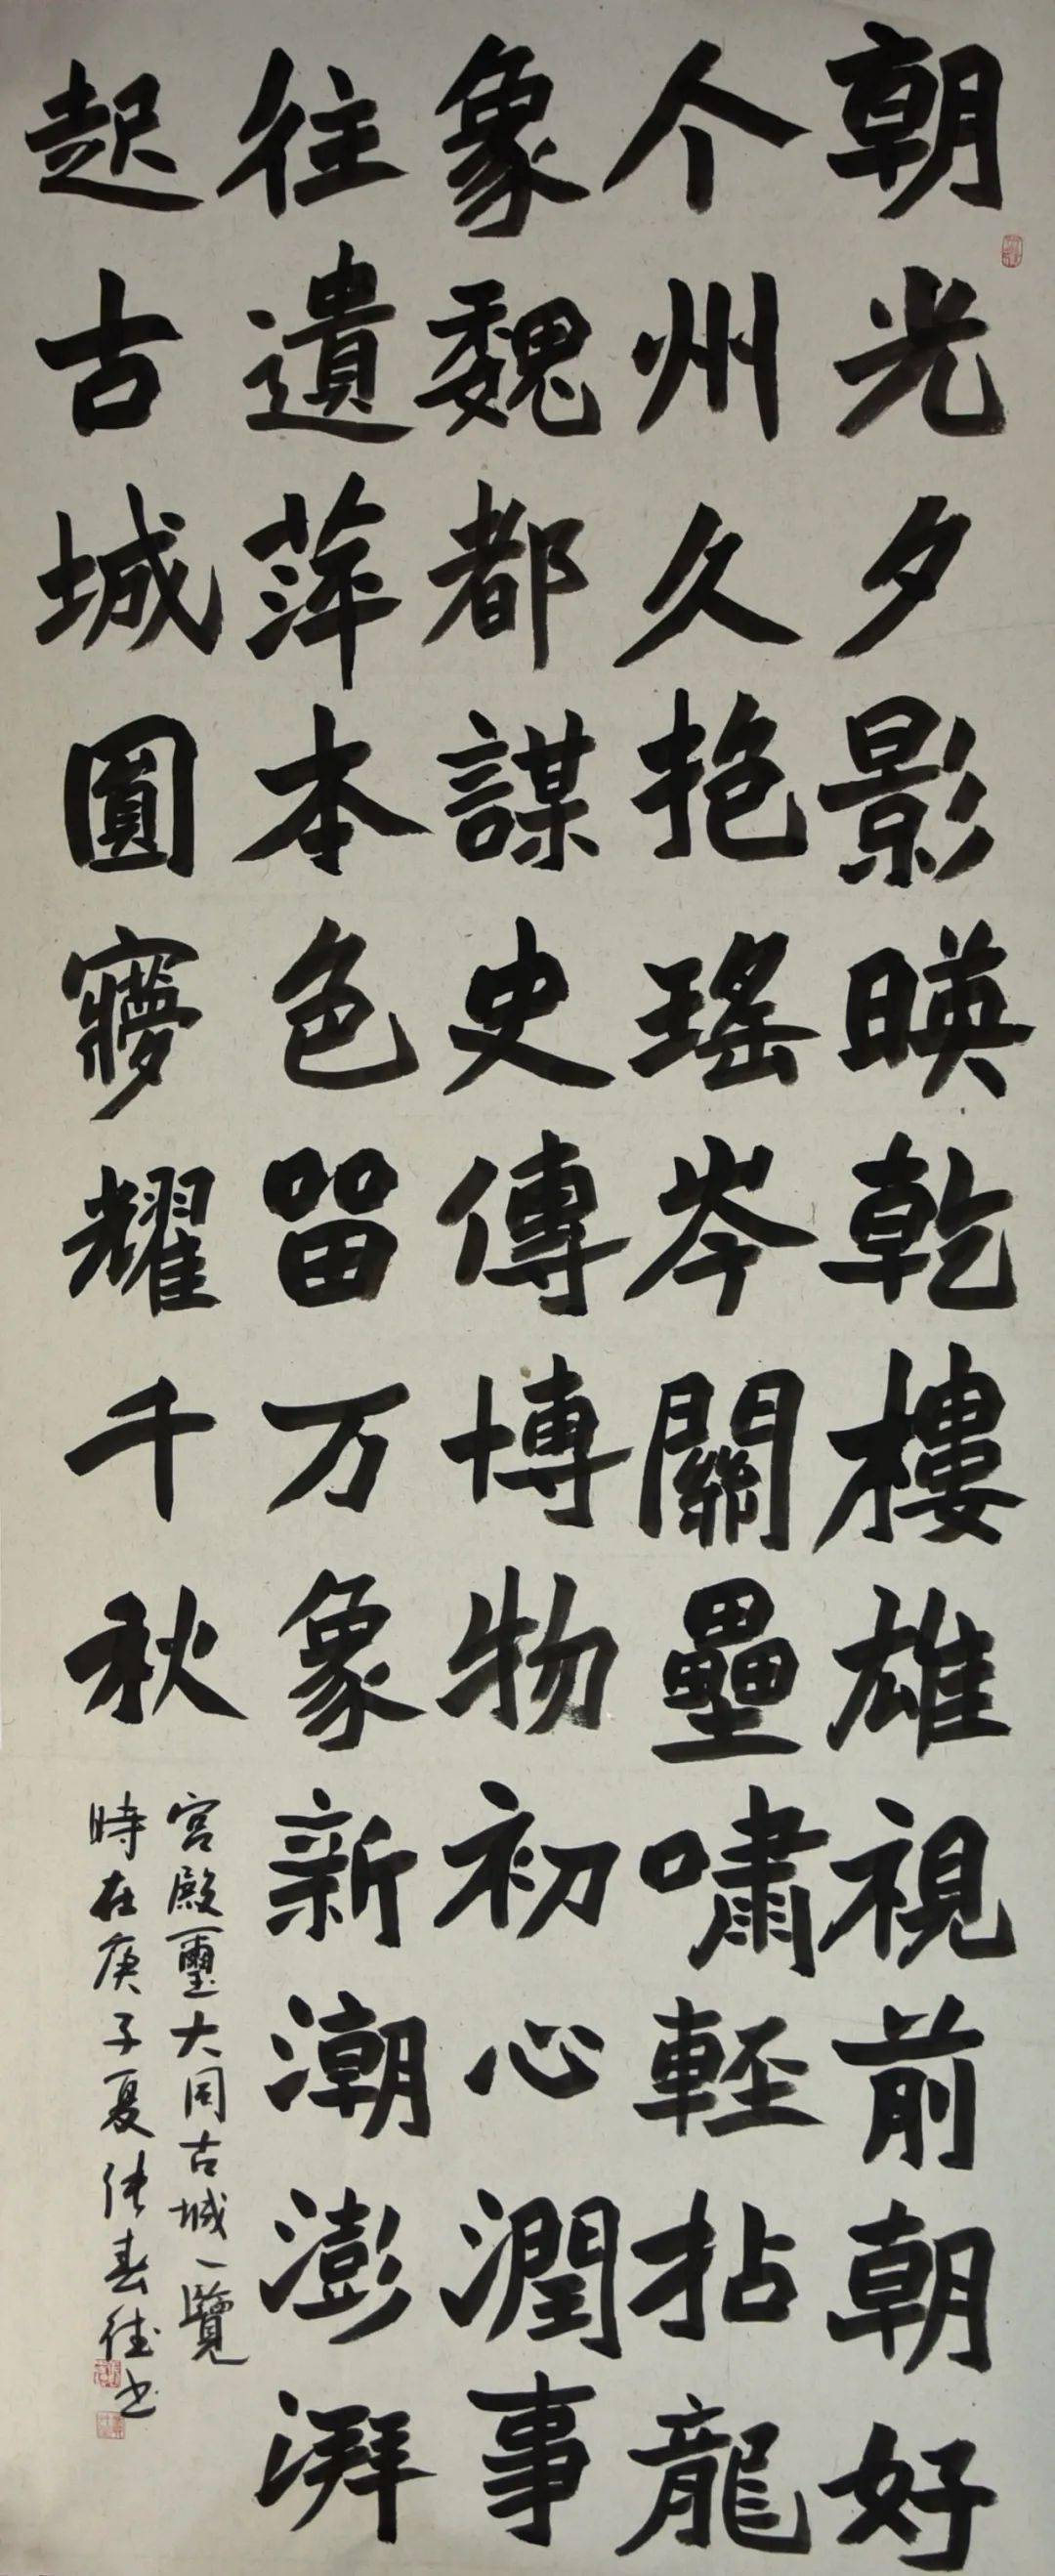 朝光夕影暎乾樓雄視前朝好
个州久抱瑤岑關壘嘯輕拈龍
象魏都謀史傳博物初心潤事
往遺萍本色留万象新潮澎湃
起古城圓夢耀千秋
宮殿璽大同古城一覽
時在庚子夏張春往书